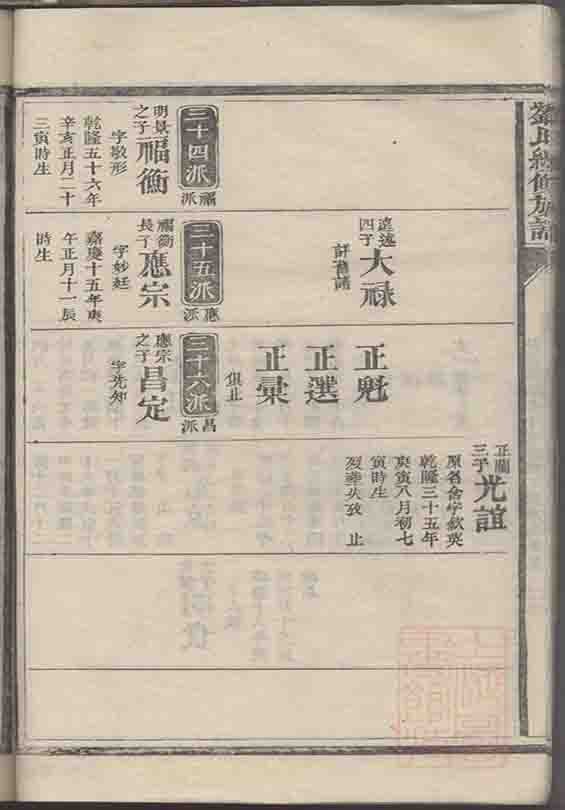 劉氏總修族譜
正關
三子
光誼
原名會字欽英
乾隆三十五年
庚寅八月初七
寅時生
歿葬失攷 止
遠述
四子
大祿
詳舊譜
正魁
正選
正彙
俱止
三十四派
福派
明景
之子
福衡
字敬形
乾隆五十六年
辛亥正月二十
三寅時生
三十五派
應派
福衡
長子
應宗
字妙廷
嘉慶十五年庚
午正月十一辰
時生
三十六派
昌派
應宗
之子
昌定
字先知